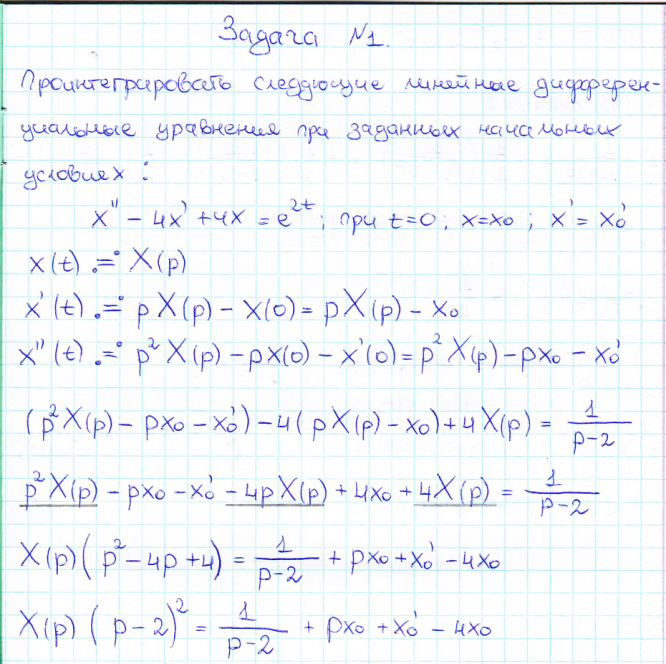 Задача №1.
Проинтегрировать следующие линейные дифферен-
циальные уравнения при заданных начальных
условиях:
x'' - 4x' + 4x = e^{2t}; при t=0, x=x₀; x' = x₀'
x(t) ≓ X(p)
x'(t) ≓ pX(p) - x(0) = pX(p) - x₀
x''(t) ≓ p²X(p) - px(0) - x'(0) = p²X(p) - px₀ - x₀'
(p²X(p) - px₀ - x₀') - 4(pX(p) - x₀) + 4X(p) = 1/(p-2)
p²X(p) - px₀ - x₀' - 4pX(p) + 4x₀ + 4X(p) = 1/(p-2)
X(p)(p² - 4p + 4) = 1/(p-2) + px₀ + x₀' - 4x₀
X(p)(p-2)² = 1/(p-2) + px₀ + x₀' - 4x₀